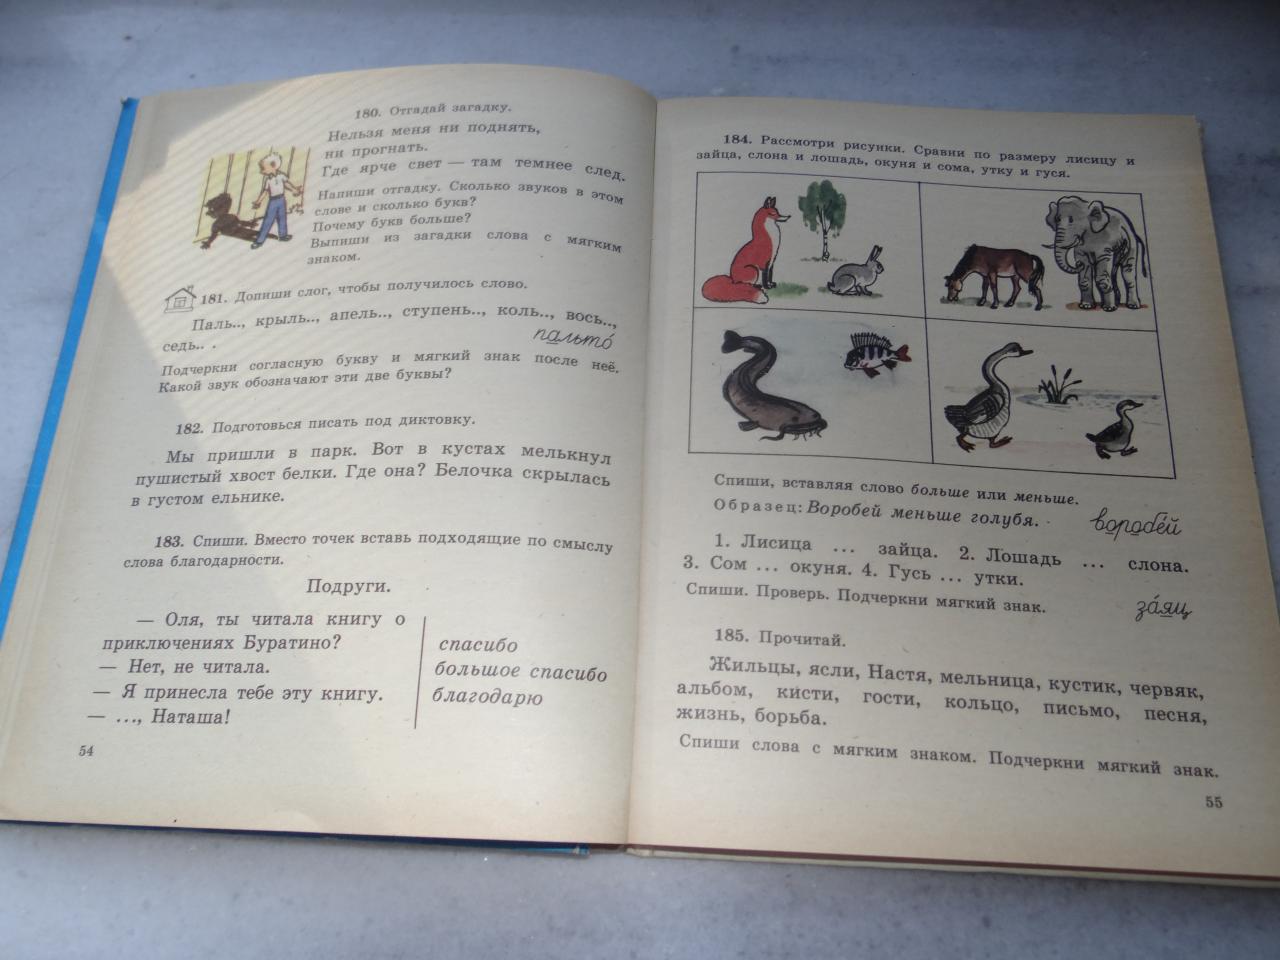 180. Отгадай загадку.
Нельзя меня ни поднять,
ни прогнать.
Где ярче свет — там темнее след.
Напиши отгадку. Сколько звуков в этом
слове и сколько букв?
Почему букв больше?
Выпиши из загадки слова с мягким
знаком.
181. Допиши слог, чтобы получилось слово.
Паль.., крыль.., апель.., ступень.., коль.., вось..,
седь.. .
пальто́
Подчеркни согласную букву и мягкий знак после неё.
Какой звук обозначают эти две буквы?
182. Подготовься писать под диктовку.
Мы пришли в парк. Вот в кустах мелькнул
пушистый хвост белки. Где она? Белочка скрылась
в густом ельнике.
183. Спиши. Вместо точек вставь подходящие по смыслу
слова благодарности.
Подруги.
— Оля, ты читала книгу о
приключениях Буратино?
— Нет, не читала.
— Я принесла тебе эту книгу.
— ..., Наташа!
спасибо
большое спасибо
благодарю
54
184. Рассмотри рисунки. Сравни по размеру лисицу и
зайца, слона и лошадь, окуня и сома, утку и гуся.
Спиши, вставляя слово больше или меньше.
Образец: Воробей меньше голубя.
воробе́й
1. Лисица ... зайца. 2. Лошадь ... слона.
3. Сом ... окуня. 4. Гусь ... утки.
Спиши. Проверь. Подчеркни мягкий знак.
за́яц
185. Прочитай.
Жильцы, ясли, Настя, мельница, кустик, червяк,
альбом, кисти, гости, кольцо, письмо, песня,
жизнь, борьба.
Спиши слова с мягким знаком. Подчеркни мягкий знак.
55